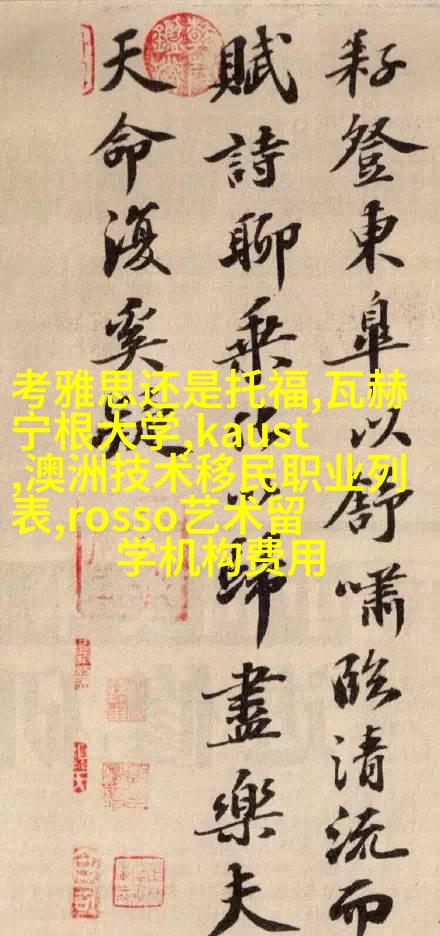 耔登東皐以舒嘯臨清流而
賦詩聊乘化以歸盡樂夫
天命復奚疑
考雅思还是托福,瓦赫
宁根大学,kaust
,澳洲技术移民职业列
表,rosso艺术留
学机构费用